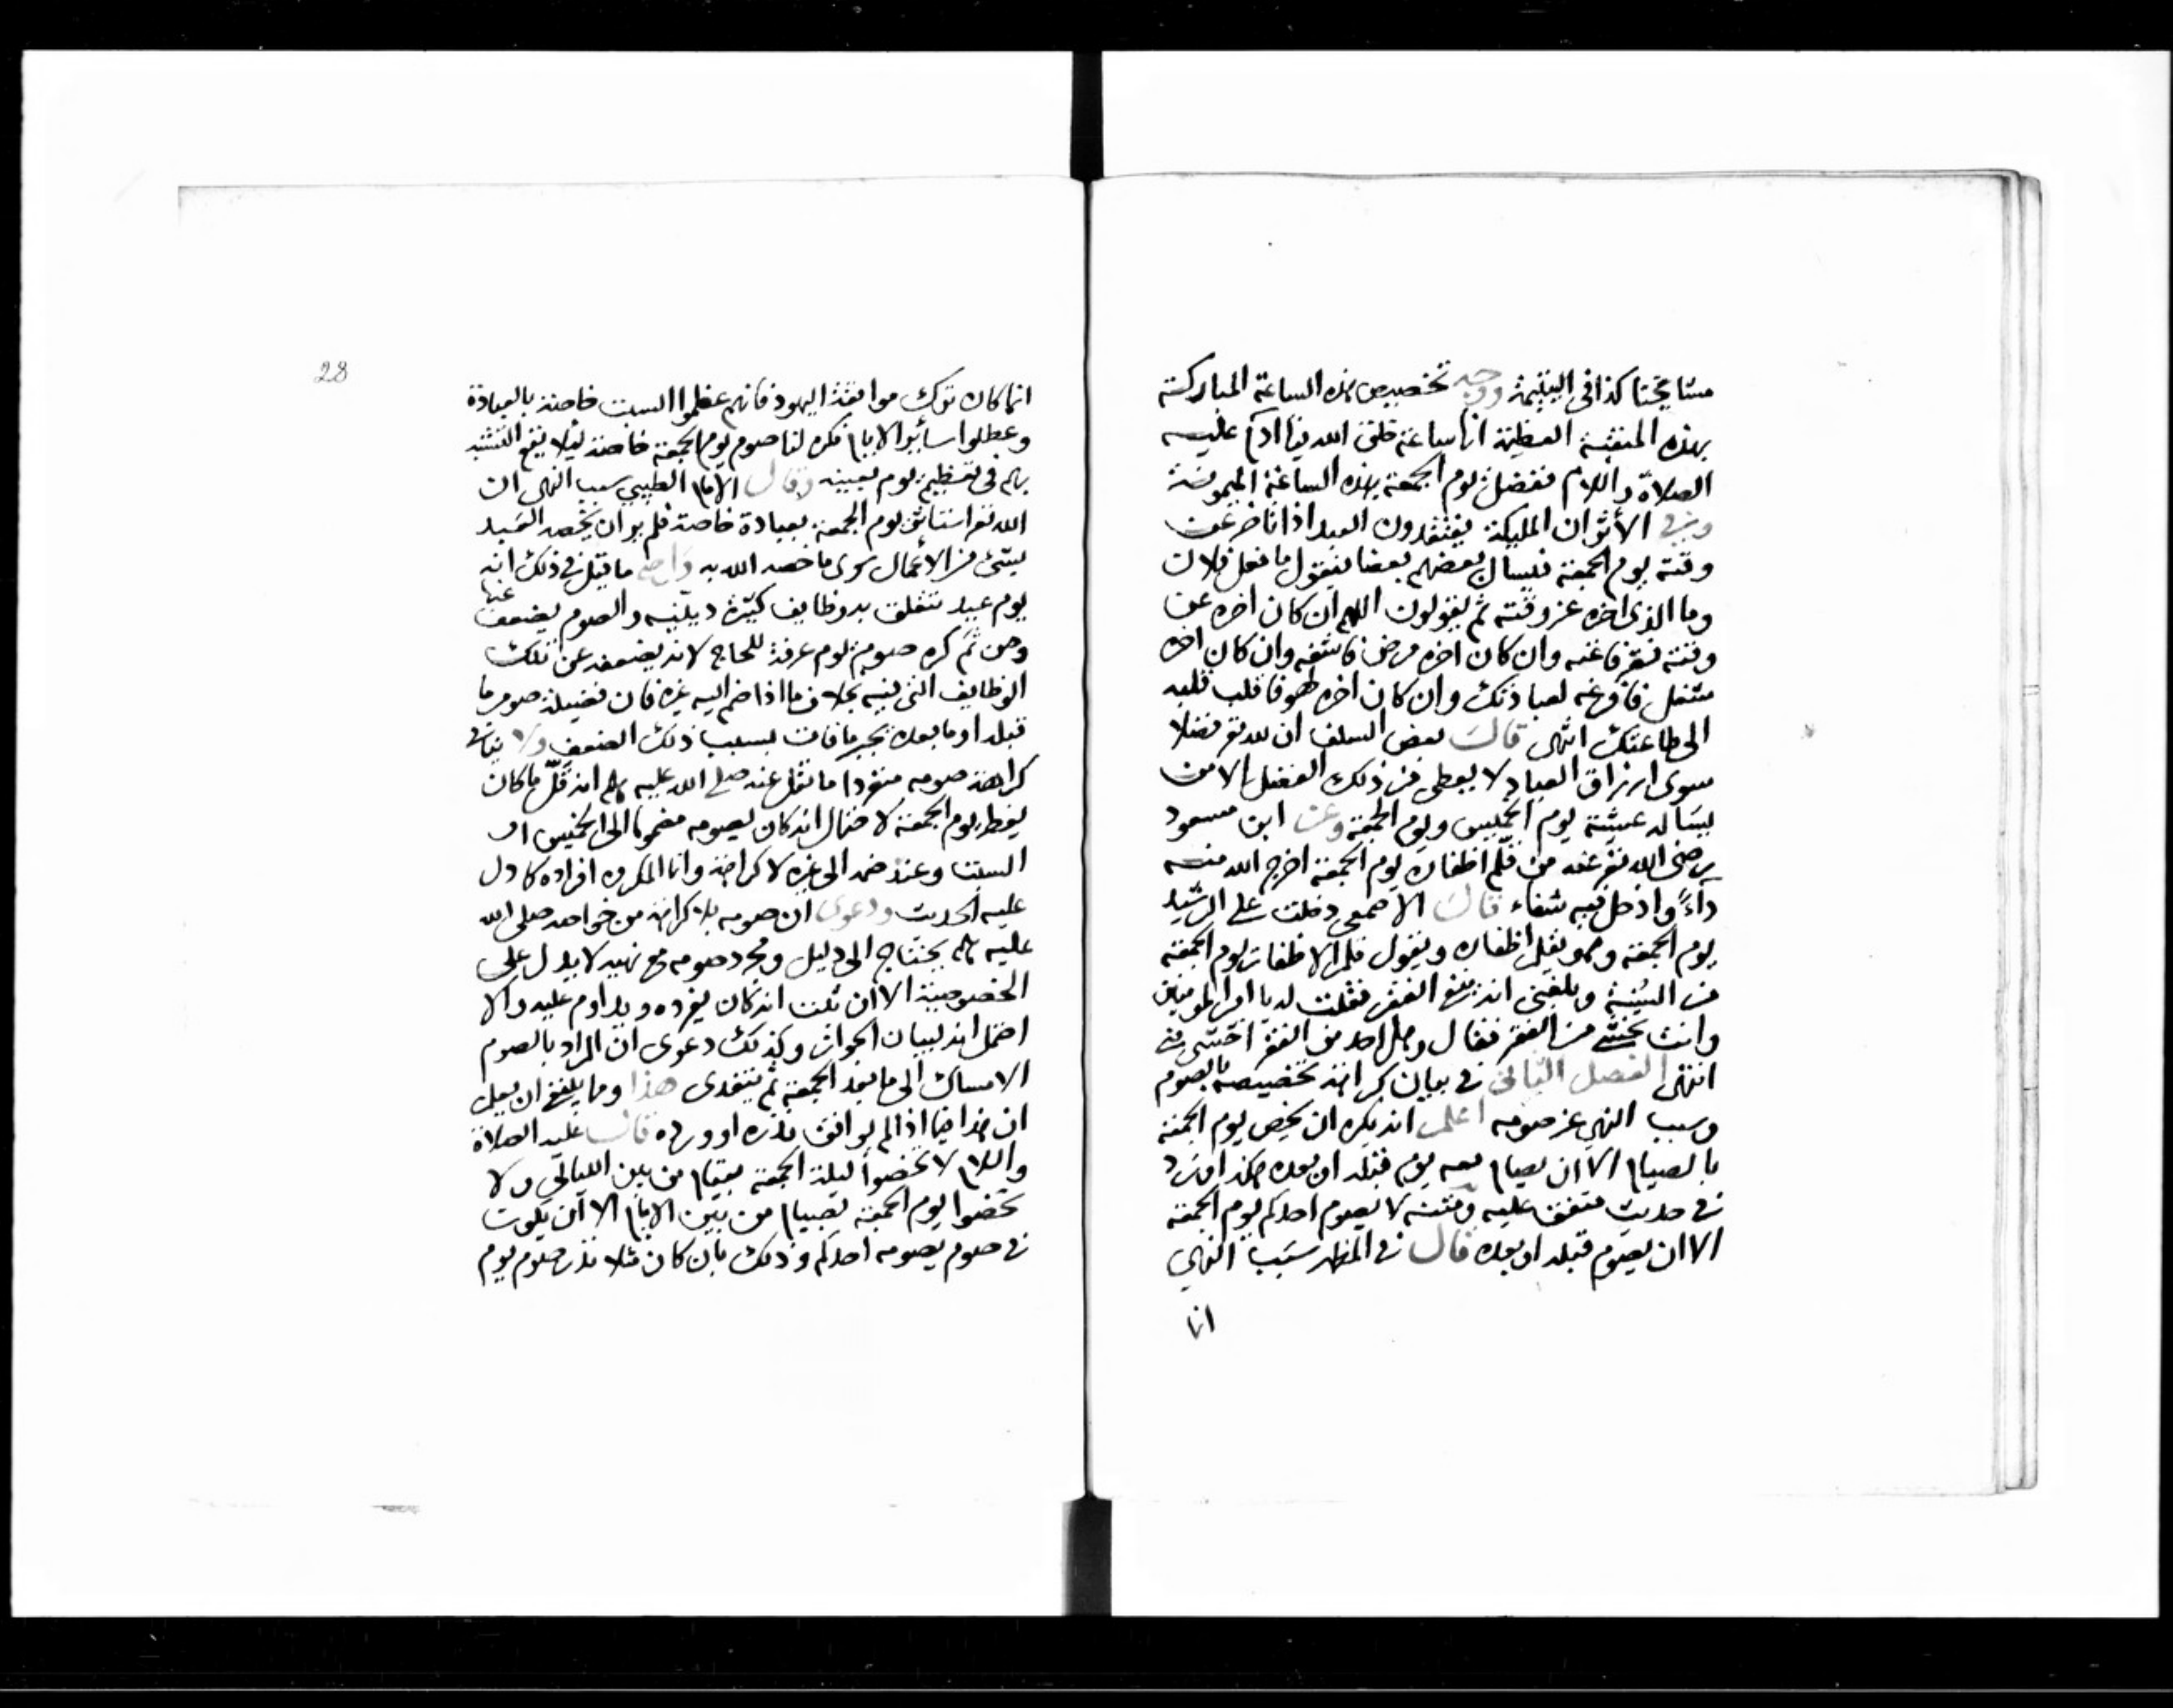 مشايخنا كذا فى اليتيمة ووجه تخصيص هذه الساعة المباركة
بهذه المنقبة العظيمة انها ساعة خلق الله فيها ادم عليه
الصلاة والسلام ففضل يوم الجمعة بهذه الساعة الميمونة
وفى الأثر ان المليكة يفتقدون العبد اذا تاخر عن
وقته يوم الجمعة فيسأل بعضهم بعضا فيقول ما فعل فلان
وما الذى اخره عن وقته ثم يقولون اللهم ان كان اخره عن
وقته فقر فاغنه وان كان اخره مرض فاشفه وان كان اخره
شغل فافرغه لعبادتك وان كان اخره لهو فاقلب قلبه
الى طاعتك انتهى قال بعض السلف ان لله تع فضلا
سوى ارزاق العباد لا يعطى من ذلك الفضل الا من
يسأله عيشية يوم الخميس ويوم الجمعة وعن ابن مسعود
رضى الله تع عنه من قلم اظفاره يوم الجمعة اخرج الله منه
داءً وادخل فيه شفاء قال الاصمعى دخلت على الرشيد
يوم الجمعة وهو يقلم اظفاره ويقول قلم الاظفار يوم الجمعة
من السنة وبلغنى انه ينفع الفقر فقلت له يا امير المومنين
وانت تخشى من الفقر فقال وهل احد من الفقر اخشى منى
انتهى الفصل الثانى فى بيان كراهة تخصيصه بالصوم
وسبب النهى عن صومه اعلم انه يكره ان يخص يوم الجمعة
بالصيام الا ان يصام معه يوم قبله او بعده هكذا ورد
فى حديث متفق عليه ومتنه لا يصوم احدكم يوم الجمعة
الا ان يصوم قبله او بعده قال فى المظهر سبب النهى
انما
28
انما كان ترك موافقة اليهود فانهم عظموا السبت خاصة بالعبادة
وعطلوا سائر الايام فكره لنا صوم يوم الجمعة خاصة ليلا يقع التشبه
بهم فى تعظيم يوم بعينه وقال الامام الطيبى سبب النهى ان
الله تع استاثر يوم الجمعة بعبادة خاصة فلم ير ان يخصه العبد
بشئ من الاعمال سوى ما خصه الله به واصح ما قيل فى ذلك انه
يوم عيد تتعلق به وظايف كثيرة دينية والصوم يضعف عنها
ومن ثم كره صوم يوم عرفة للحاج لانه يضعفه عن تلك
الوظايف التى فيه بخلاف ما اذا ضم اليه غيره فان فضيلة صوم ما
قبله او ما بعده تجبر ما فات بسبب ذلك الضعف ولا ينافى
كراهة صومه منفردا ما نقل عنه صلى الله عليه وسلم انه قلّ ما كان
يفطر يوم الجمعة لاحتمال انه كان يصومه مضموما الى الخميس او
السبت وعند ضمه الى غيره لا كراهة وانما المكروه افراده كما دل
عليه الحديث ودعوى ان صومه بلا كراهة من خواصه صلى الله
عليه وسلم يحتاج الى دليل ومجرد صومه مع نهيه لا يدل على
الخصوصية الا ان ثبت انه كان يفرده ويداوم عليه والا
احتمل انه لبيان الجواز وكذلك دعوى ان المراد بالصوم
الامساك الى ما بعد الجمعة ثم يتغدى هذا ومما ينبغى ان يعلم
ان هذا فيما اذا لم يوافق نذره او ورده قال عليه الصلاة
والسلام لا تخصوا ليلة الجمعة بقيام من بين الليالى ولا
تخصوا يوم الجمعة بصيام من بين الايام الا ان يكون
فى صوم يصومه احدكم وذلك بان كان مثلا نذر صوم يوم